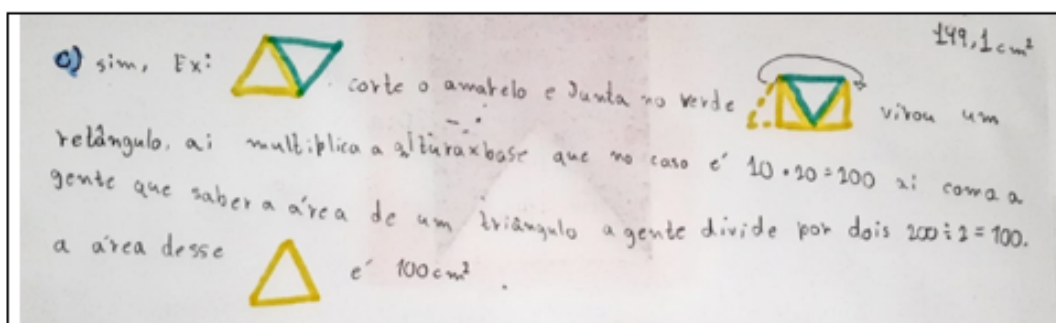 149,1 cm²
c) sim, Ex: corte o amarelo e Junta no verde virou um
retângulo. ai multiplica a altura x base que no caso é 10 • 20 = 200 ai como a
gente que saber a área de um triângulo a gente divide por dois 200 ÷ 2 = 100.
a área desse é 100 cm².